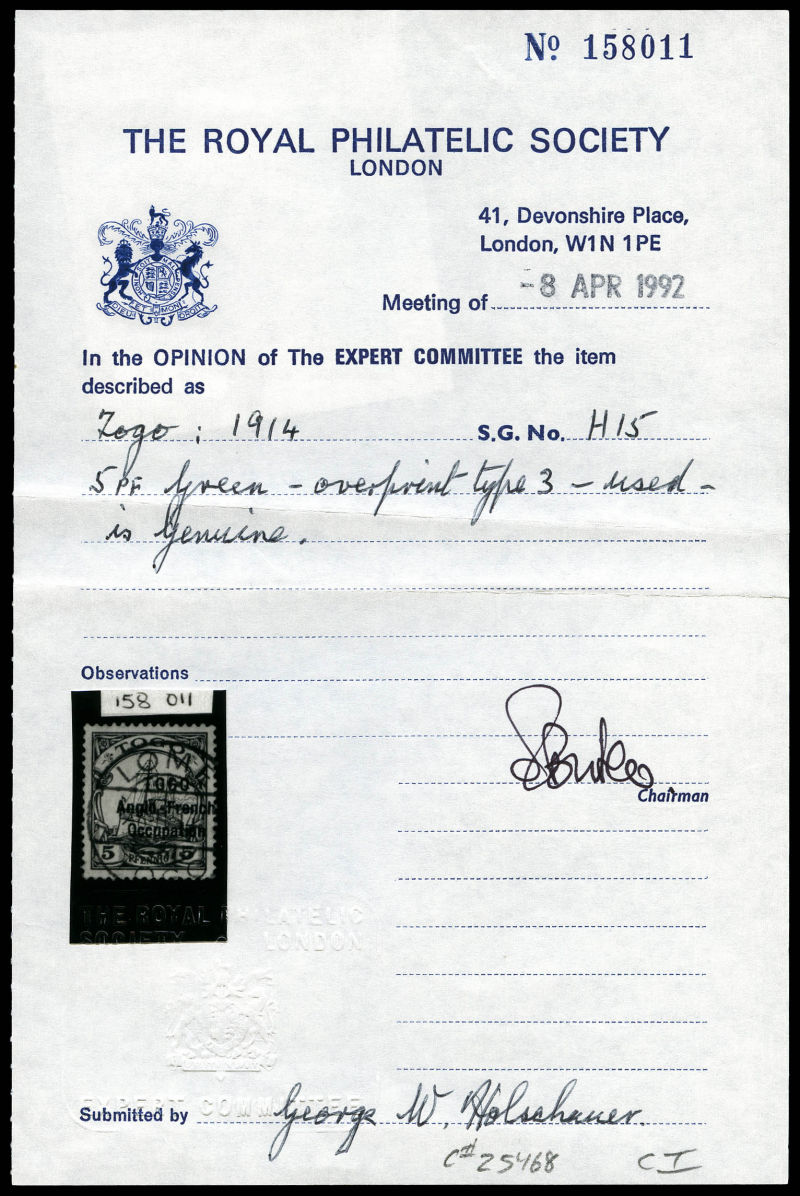 No. 158011
THE ROYAL PHILATELIC SOCIETY
LONDON
41, Devonshire Place,
London, W1N 1PE
Meeting of -8 APR 1992
In the OPINION of The EXPERT COMMITTEE the item
described as
Togo : 1914 S.G. No. H15
5 PF Green - overprint type 3 - used -
is genuine.
Observations
158 011
TOGO
LOME
TOGO
Anglo-French
Occupation
5 PFENNIG 5
Chairman
THE ROYAL PHILATELIC
SOCIETY LONDON
EXPERT COMMITTEE
Submitted by George W. Holschauer.
C# 25468 CI